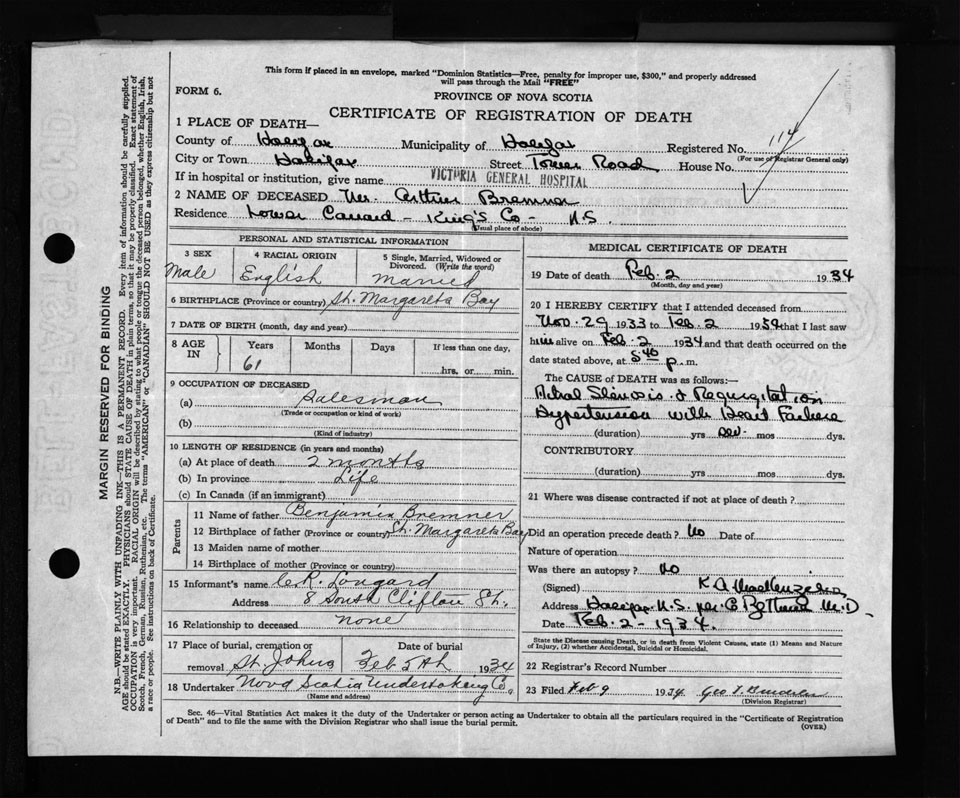 This form if placed in an envelope, marked "Dominion Statistics—Free, penalty for improper use, $300," and properly addressed
will pass through the Mail "FREE"
FORM 6.
PROVINCE OF NOVA SCOTIA
CERTIFICATE OF REGISTRATION OF DEATH
1 PLACE OF DEATH—
County of Halifax Municipality of Halifax Registered No. 114
(For use of Registrar General only)
City or Town Halifax Street Tower Road House No.
If in hospital or institution, give name VICTORIA GENERAL HOSPITAL
2 NAME OF DECEASED Mr. Arthur Bremner
Residence Lower Canard - King's Co - N.S.
(Usual place of abode)
PERSONAL AND STATISTICAL INFORMATION
3 SEX Male
4 RACIAL ORIGIN English
5 Single, Married, Widowed or
Divorced. (Write the word)
Married
6 BIRTHPLACE (Province or country) St. Margarets Bay
7 DATE OF BIRTH (month, day and year)
8 AGE IN
Years Months Days If less than one day,
61 hrs. or min.
9 OCCUPATION OF DECEASED
(a) Salesman
(Trade or occupation or kind of work)
(b)
(Kind of industry)
10 LENGTH OF RESIDENCE (in years and months)
(a) At place of death 2 months
(b) In province Life
(c) In Canada (if an immigrant)
Parents
11 Name of father Benjamin Bremner
12 Birthplace of father (Province or country) St. Margarets Bay
13 Maiden name of mother
14 Birthplace of mother (Province or country)
15 Informant's name C.R. Longard
Address 8 South Clifton St.
16 Relationship to deceased none
17 Place of burial, cremation or removal St. Johns
Date of burial Feb 5th 1934
18 Undertaker Nova Scotia Undertaking Co.
(Name and address)
MEDICAL CERTIFICATE OF DEATH
19 Date of death Feb. 2 1934
(Month, day and year)
20 I HEREBY CERTIFY that I attended deceased from
Nov. 29 1933 to Feb. 2 1934 that I last saw
him alive on Feb. 2 1934 and that death occurred on the
date stated above, at 5.40 p. m.
The CAUSE OF DEATH was as follows:—
Mitral Stenosis & Regurgitation
Hypertension with Heart Failure
(duration) yrs mos dys.
CONTRIBUTORY
(duration) yrs. mos. dys.
21 Where was disease contracted if not at place of death?
Did an operation precede death? No Date of
Nature of operation
Was there an autopsy? No
(Signed) K A MacKenzie M.D.
Address Halifax N.S. per M.D.
Date Feb. 2 - 1934.
State the Disease causing Death, or in death from Violent Causes, state (1) Means and Nature
of Injury, (2) whether Accidental, Suicidal or Homicidal.
22 Registrar's Record Number
23 Filed Feb 9 1934 Geo
(Division Registrar)
Sec. 46—Vital Statistics Act makes it the duty of the Undertaker or person acting as Undertaker to obtain all the particulars required in the "Certificate of Registration
of Death" and to file the same with the Division Registrar who shall issue the burial permit.
(OVER)
MARGIN RESERVED FOR BINDING
N.B.—WRITE PLAINLY WITH UNFADING INK—THIS IS A PERMANENT RECORD. Every item of information should be carefully supplied.
AGE should be stated EXACTLY. PHYSICIANS should STATE CAUSE OF DEATH in plain terms, so that it may be properly classified. Exact statement of
OCCUPATION is very important. RACIAL ORIGIN will be described by stating to what people or tongue the deceased person belonged, whether English, Irish,
Scotch, French, German, Russian, Ruthenian, etc. The terms "AMERICAN" or "CANADIAN" SHOULD NOT BE USED as they express citizenship but not
a race or people. See instructions on back of Certificate.